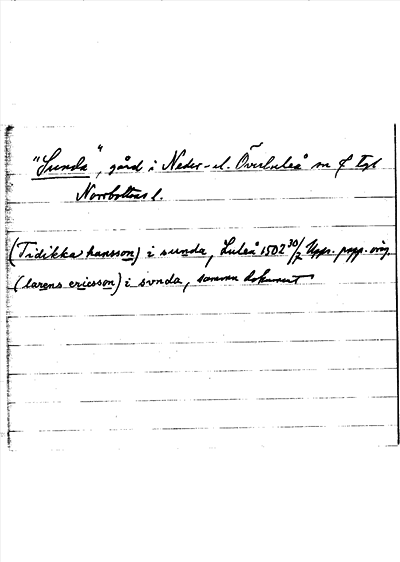 "Sunda", gård i Neder- el. Överluleå sn & tgl
Norrbottens l.
(Tidikka hansson) i sunda, Luleå 1502 30/7 Upps. papp. orig.
(larens ericsson) i svnda, samma dokument